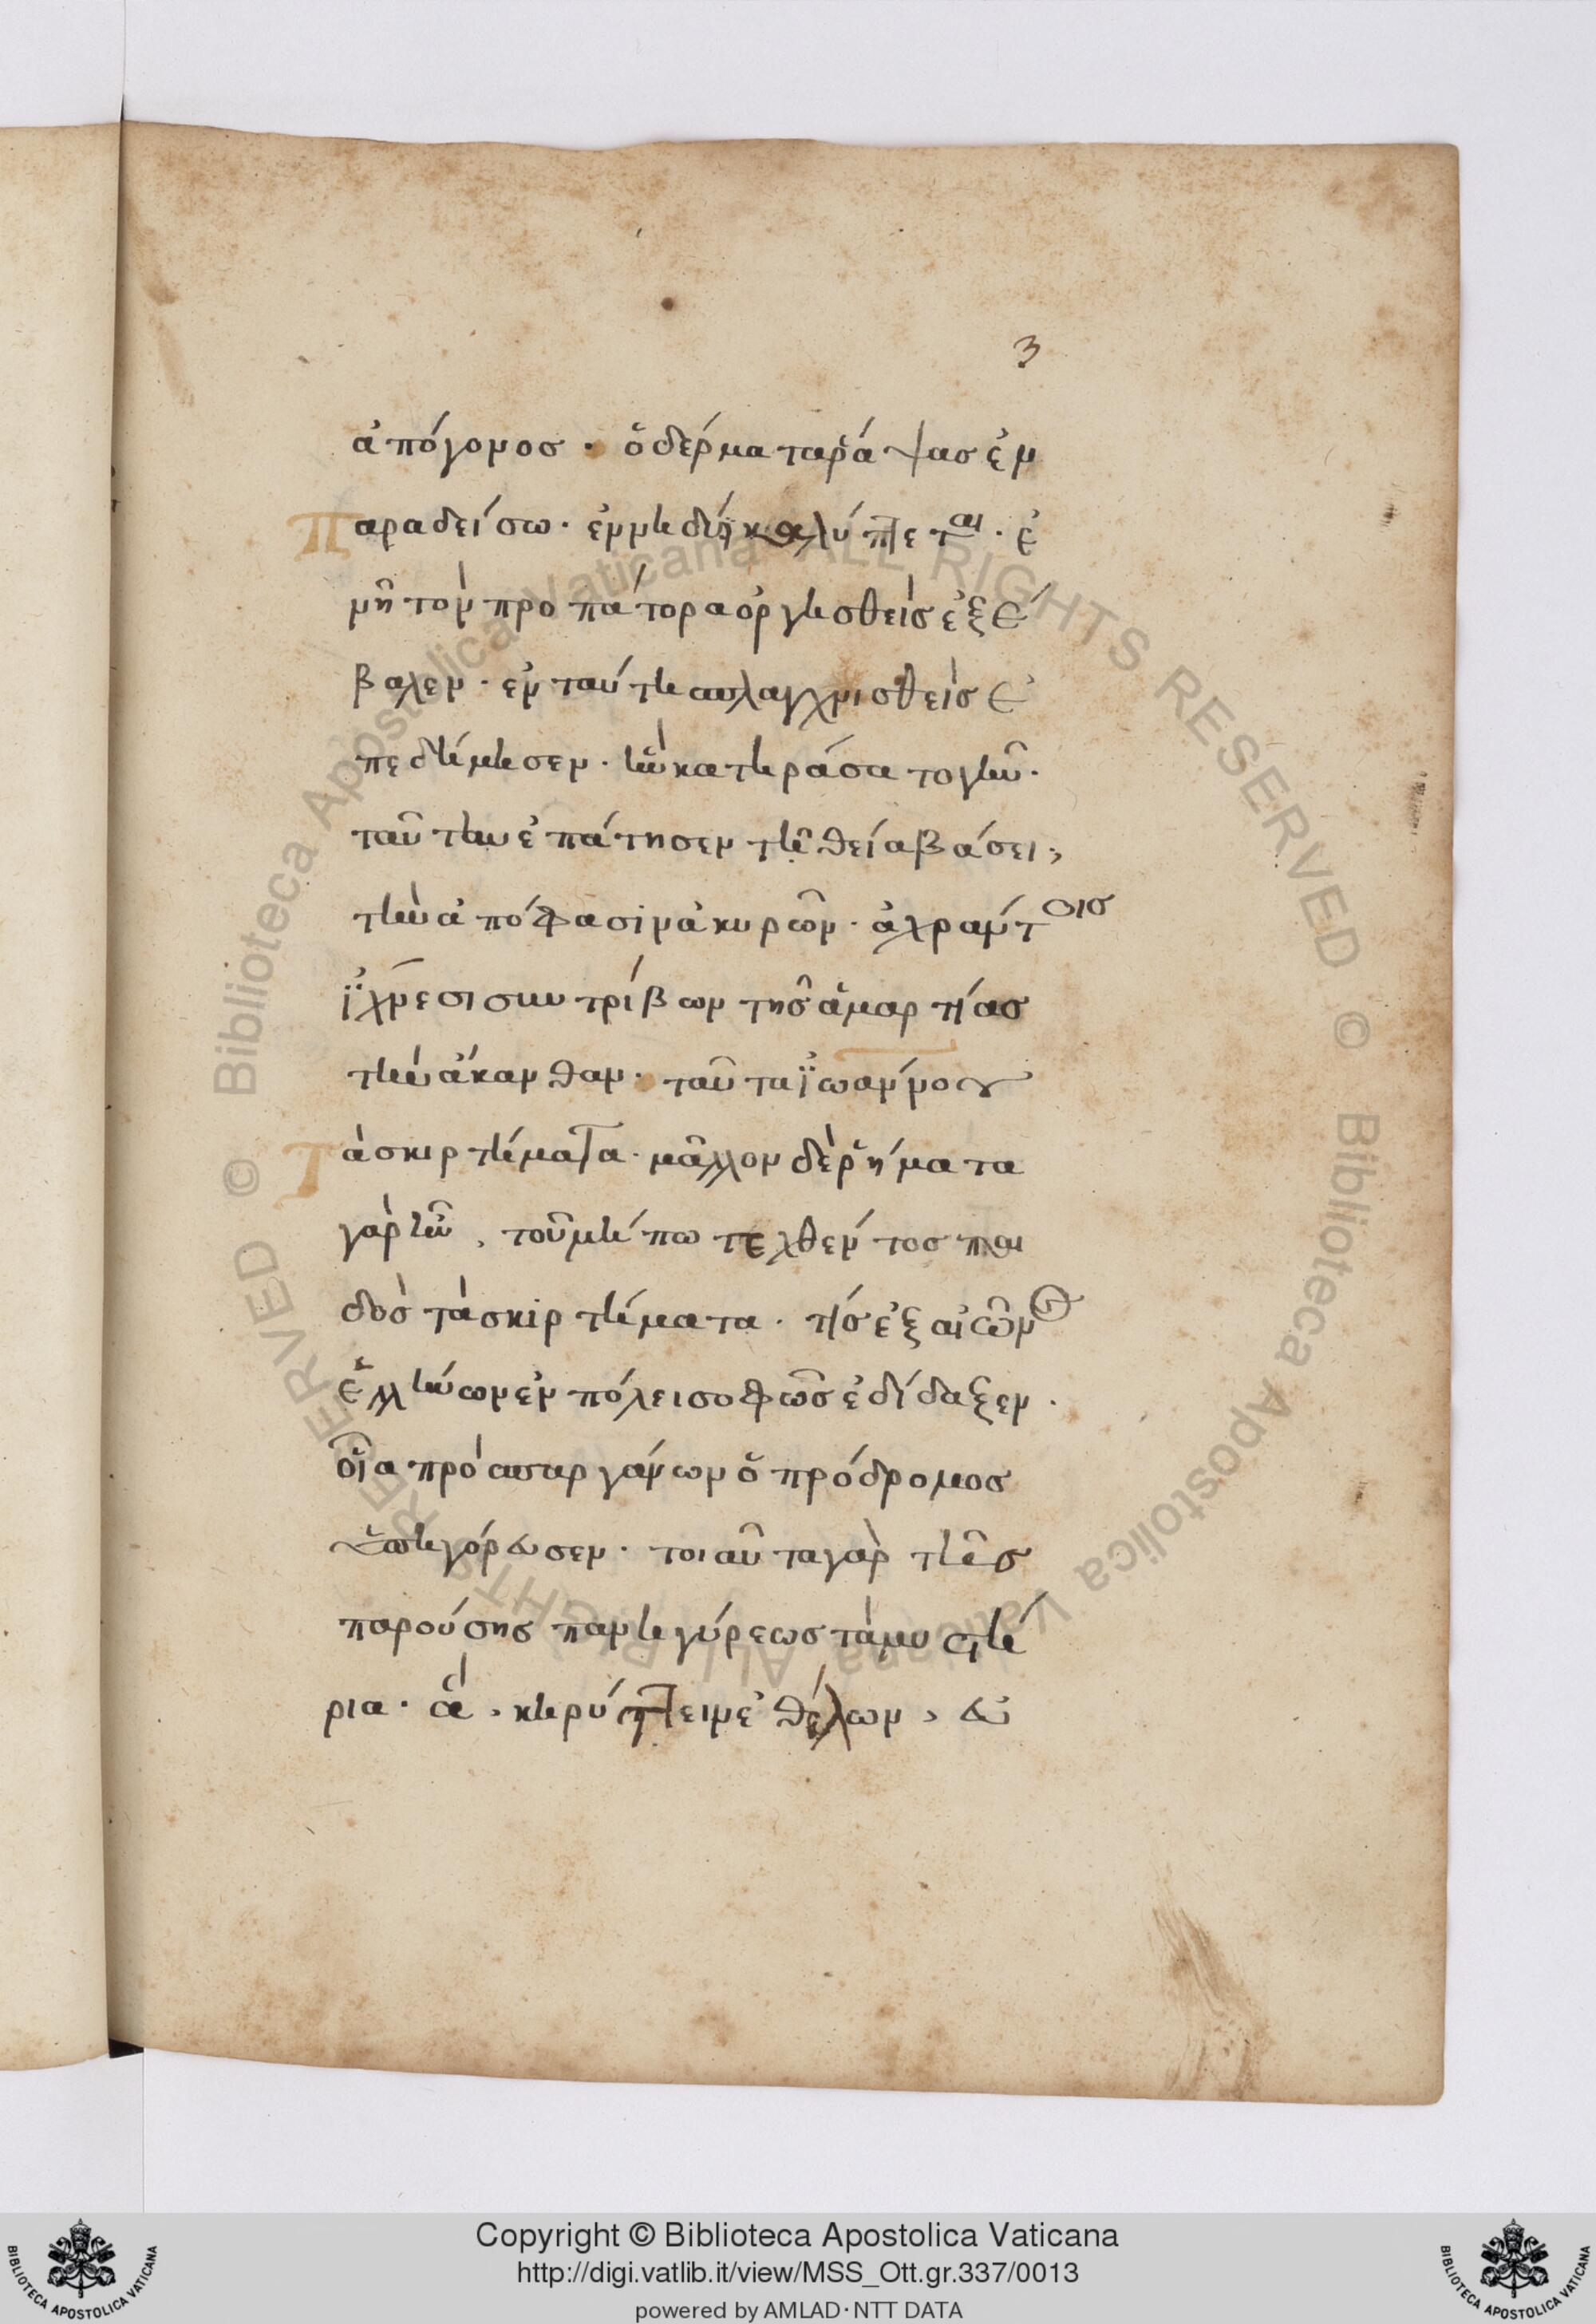 3
ἀπόγονος · ὁ δέρματα ῥάψας ἐν
Παραδείσω · ἐν μήδίη καλύπτεται · ἐ
νῆ τὸν προπάτορα ὀργησθεὶς ἐξέ
βαλεν · ἐν ταύτη σπλαγχνισθεὶς ἐ
πεδήμησεν · ἣν κατηράσατο γῆν ·
ταύτην ἐπάτησεν τῆ θεία βάσει,
τὴν ἀπόφασιν ἀκυρῶν · ἀχράντοις
ἴχνεσι συντρίβων τῆς ἁμαρτίας
τὴν ἄκανθαν · ταῦτα ἰωάννου
Τὰ σκιρτήματα · μᾶλλον δὲ ῥήματα
γὰρ ἦν, τοῦ μήπω τεχθέντος παι
δὸς τὰ σκιρτήματα · τίς ἐξ αἰῶνος
ἑλλήνων ἐν πόλει σοφῶς ἐδίδαξεν ·
οἷα πρὸ σπαργάνων ὁ πρόδρομος
ὑπηγόρευσεν · τοιαῦτα γὰρ τῆς
παρούσης πανηγύρεως τὰ μυστή
ρια · ἃ, κηρύττειν ἐθέλων, εὐ
Copyright © Biblioteca Apostolica Vaticana
http://digi.vatlib.it/view/MSS_Ott.gr.337/0013
powered by AMLAD·NTT DATA
BIBLIOTECA APOSTOLICA VATICANA
BIBLIOTECA APOSTOLICA VATICANA
© Biblioteca Apostolica Vaticana ALL RIGHTS RESERVED © Biblioteca Apostolica Vaticana ALL RIGHTS RESERVED